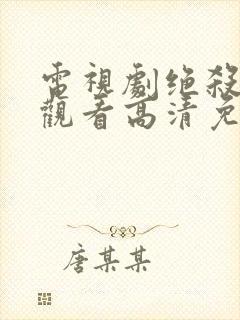 電視劇绝殺
觀看高清免
唐某某